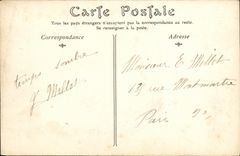 Carte Postale
Tous les pays étrangers n'acceptent pas la correspondance au recto.
Se renseigner à la poste.
Correspondance
Adresse
temps sombre
J Millet
Monsieur E Millet
12 rue Montmartre
Paris